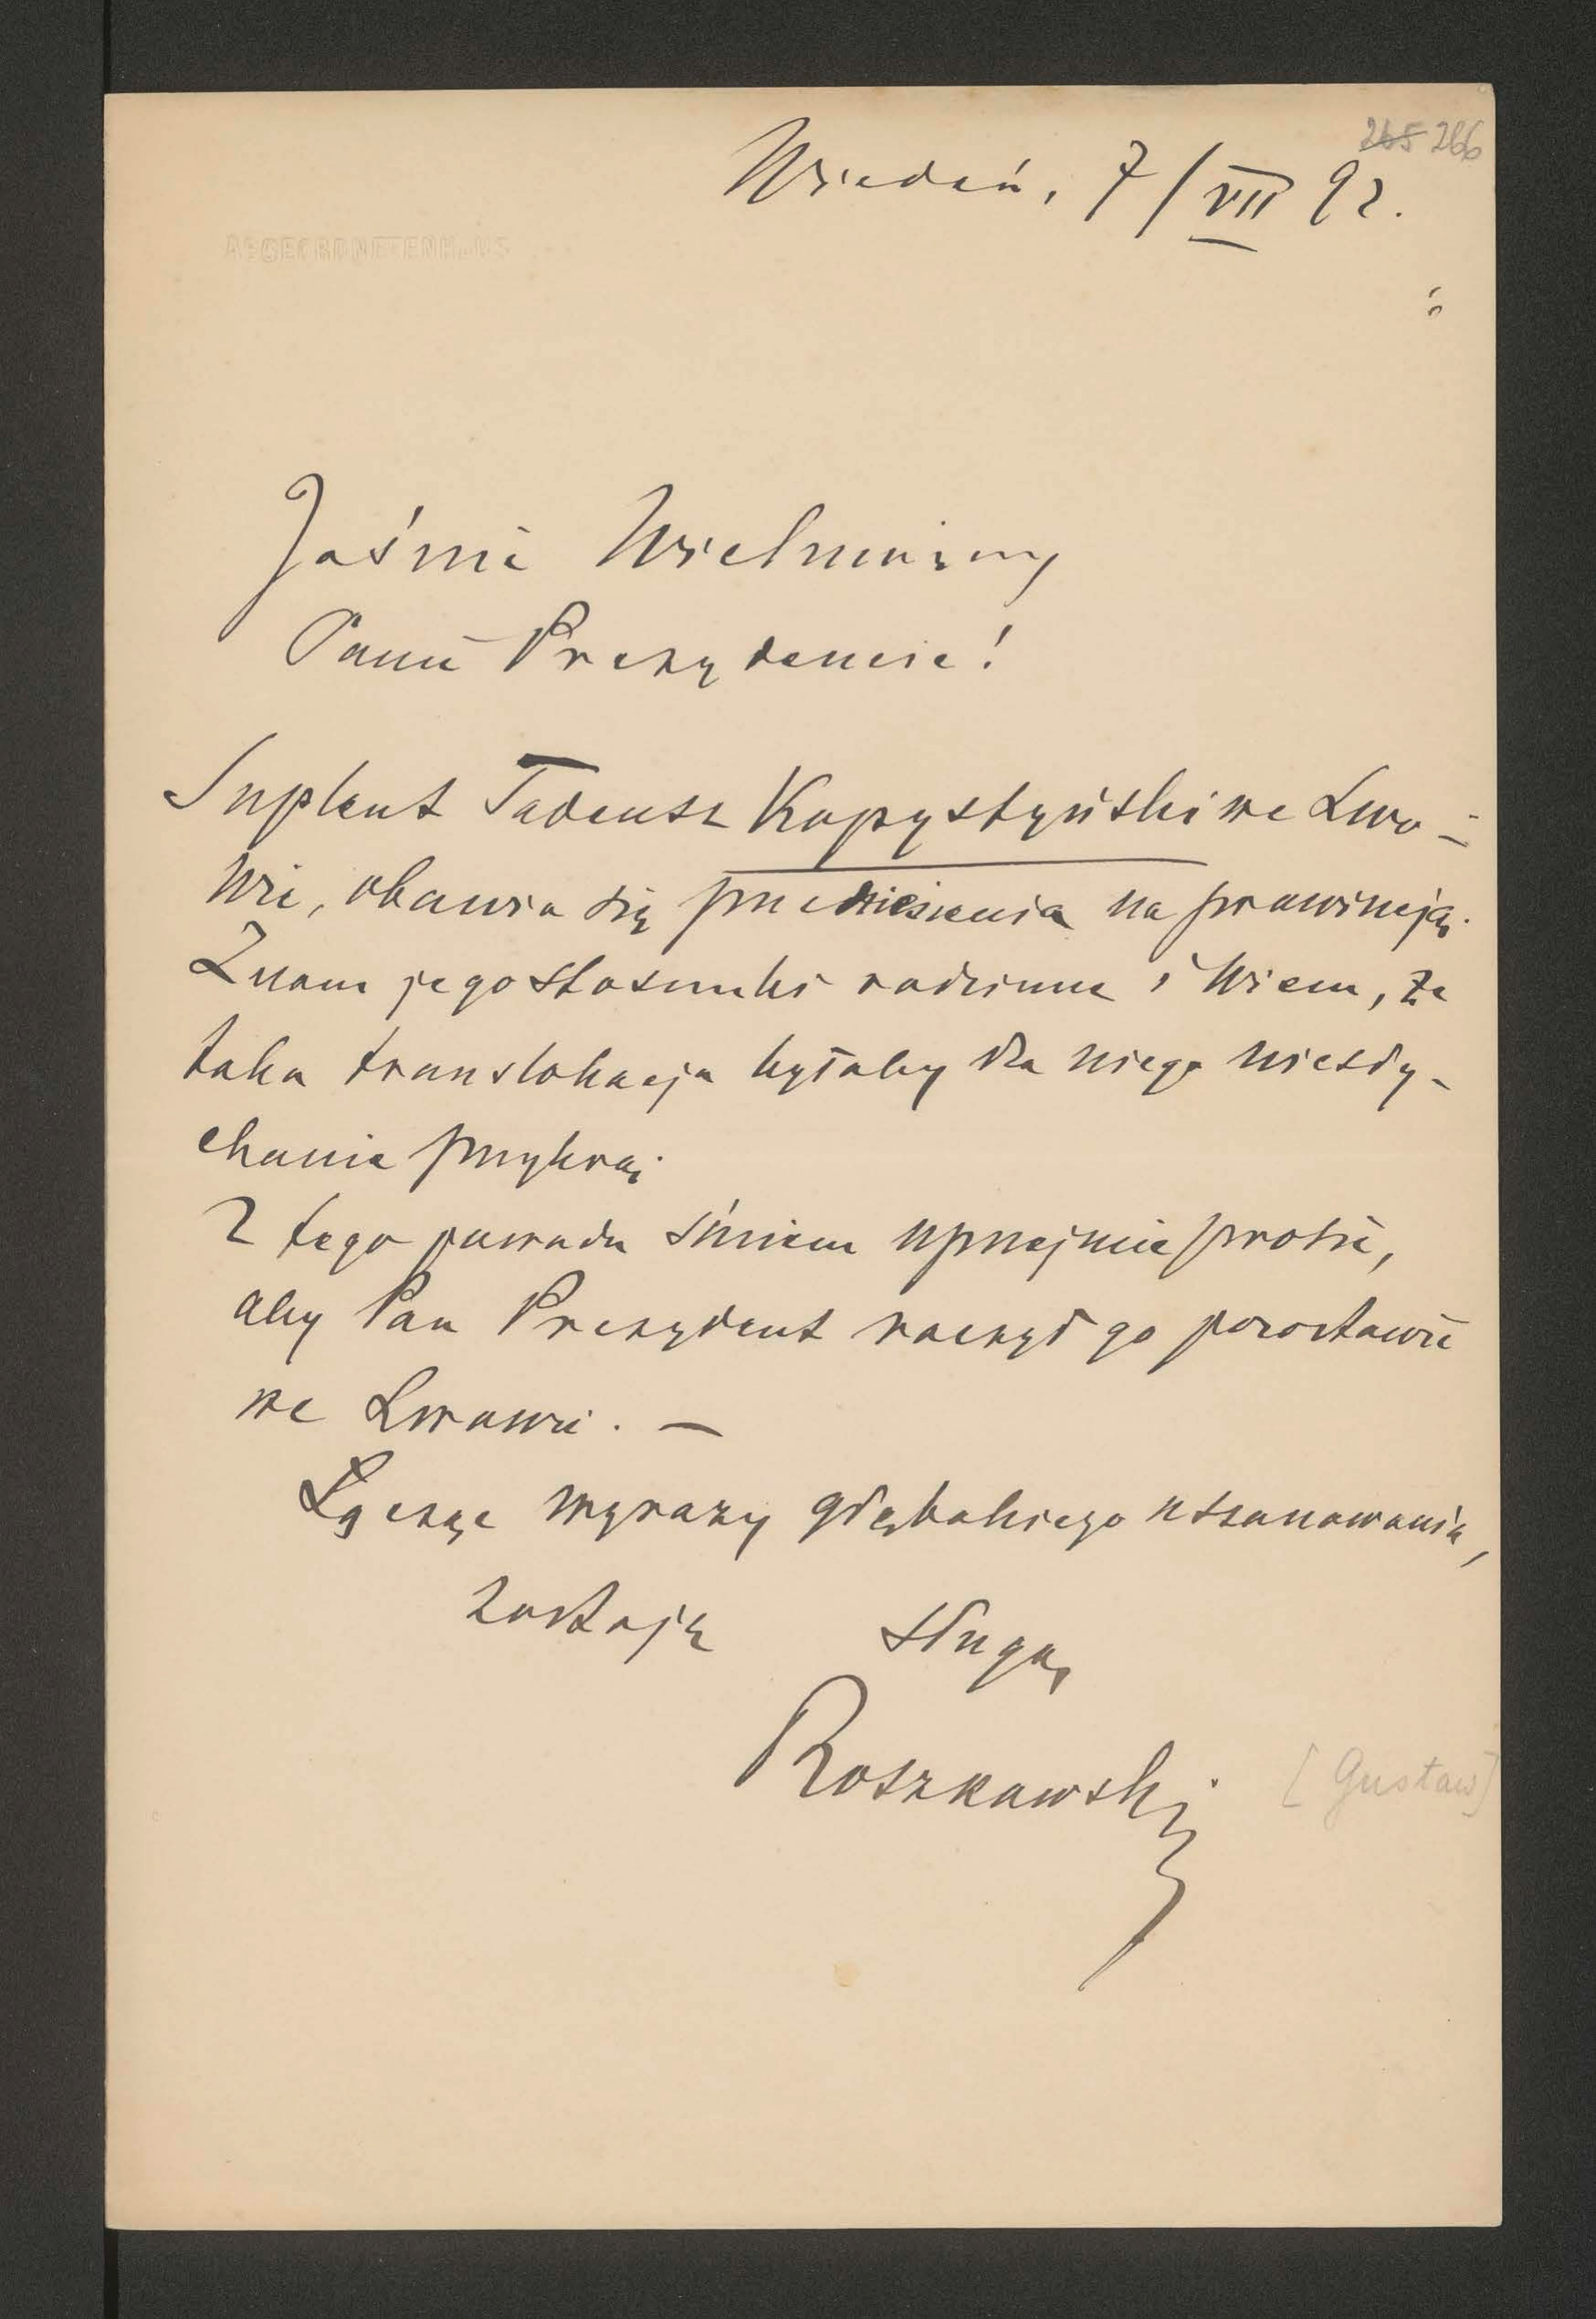 265 266
Wiedeń, 7/VII 92.
ABGEORDNETENHAUS
Jaśnie Wielmożny
Panie Prezydencie!
Suplent Tadeusz Kopystyński we Lwo-
wie, obawia się przeniesienia na prowincję.
Znam jego stosunki rodzinne i wiem, że
taka translokacja byłaby dla niego niesły-
chanie przykrą;
Z tego powodu śmiem uprzejmie prosić,
aby Pan Prezydent raczył go pozostawić
we Lwowie. —
Łączę wyrazy głębokiego uszanowania,
zostaję sługą,
Roszkowski [Gustaw]